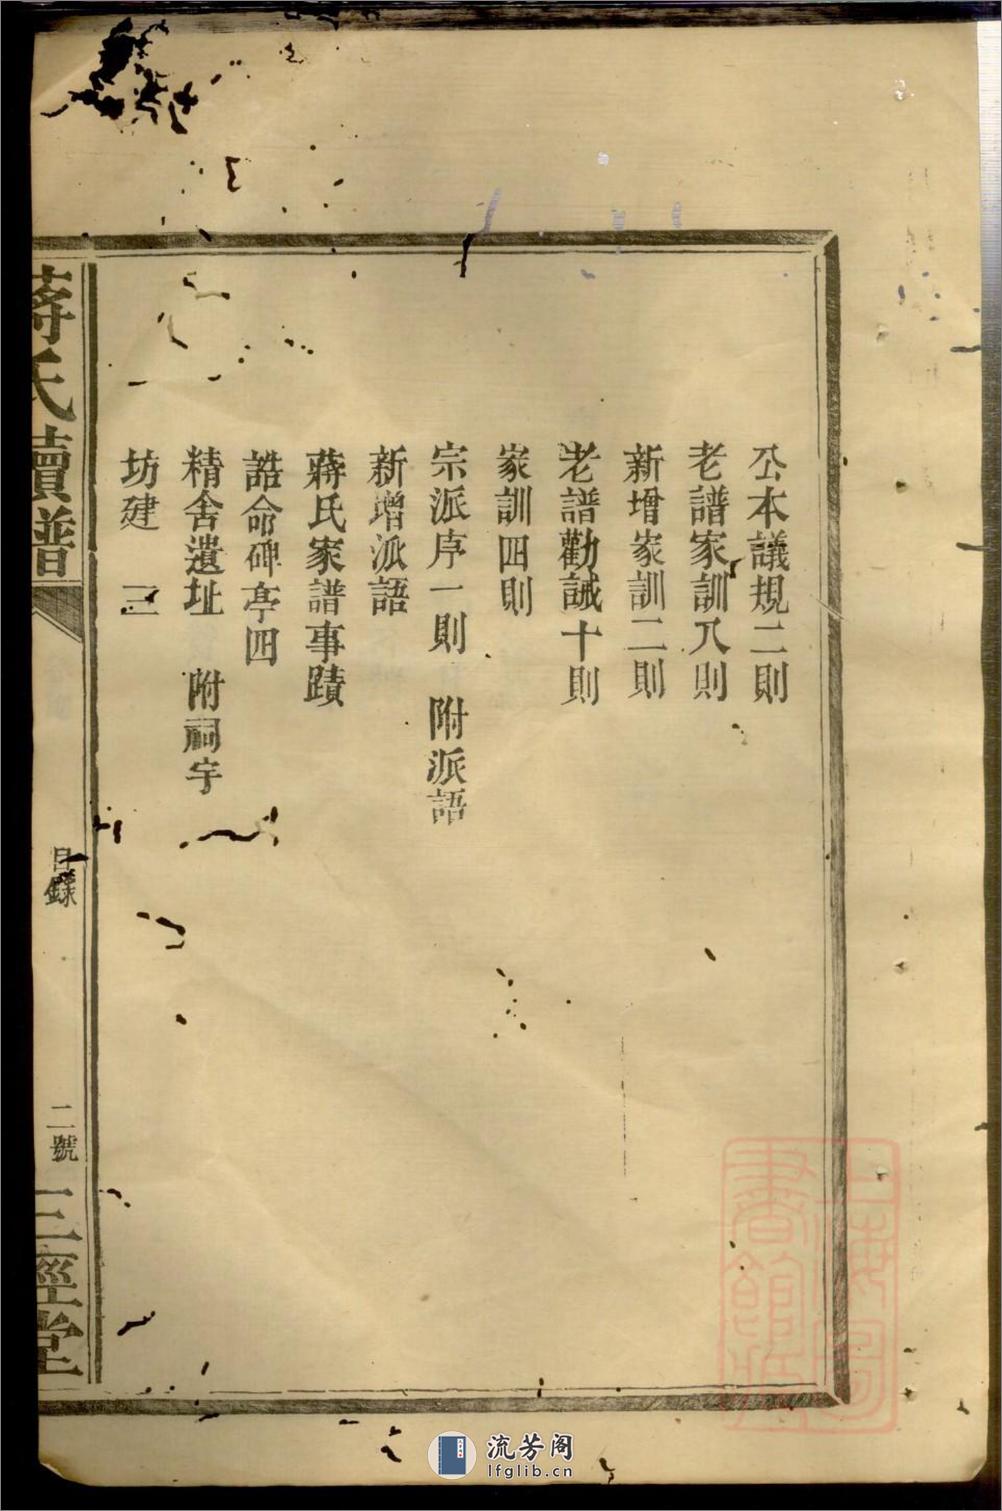 公本議規二則
老譜家訓八則
新增家訓二則
老譜勸誡十則
家訓四則
宗派序一則 附派語
新增派語
蔣氏家譜事蹟
誥命碑亭四
精舍遺址 附祠宇
坊建 三
蔣氏續譜
目錄
二號
三徑堂
上海圖書館藏
流芳阁
lfglib.cn